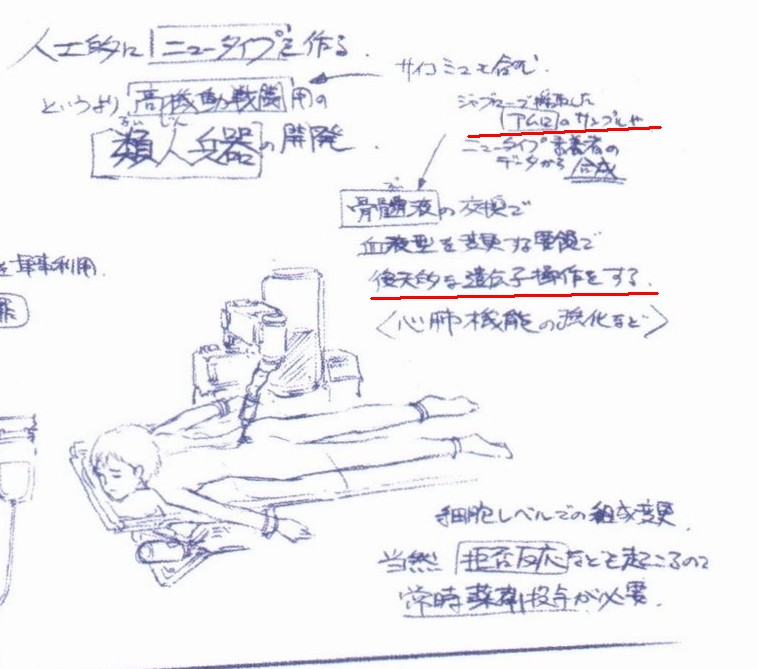 人工的に ニュータイプを作る.
というより 高機動戦闘用の
類人兵器の開発.
るいじん
サイコミュも含む.
ジャブローで採取した
アムロのサンプルや
ニュータイプ素養者の
データから合成
骨髄液の交換で
血液型を変更する要領で
後天的な遺伝子操作をする.
〈心肺機能の強化など〉
を軍事利用.
細胞レベルでの組成変更.
当然 拒否反応なども起こるので
常時薬剤投与が必要.